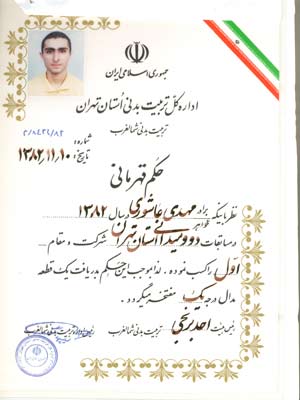 جمهوری اسلامی ایران
اداره کل تربیت بدنی استان تهران
تربیت بدنی شمالغرب
شماره: ۲/۸۴۲۱/۸۲
تاریخ: ۱۳۸۲,۱۱,۱۰
حکم قهرمانی
نظر باینکه برادر خواهر مهدی عاشوری در سال ۱۳۸۲
در مسابقات دو و میدانی استان تهران شرکت و مقام
اول را کسب نموده. لذا بموجب این حکم به دریافت یک قطعه
مدال درجه یک مفتخر میگردد.
رئیس هیئت احد برنجی تربیت بدنی شمالغرب
رئیس اداره تربیت بدنی شمالغرب